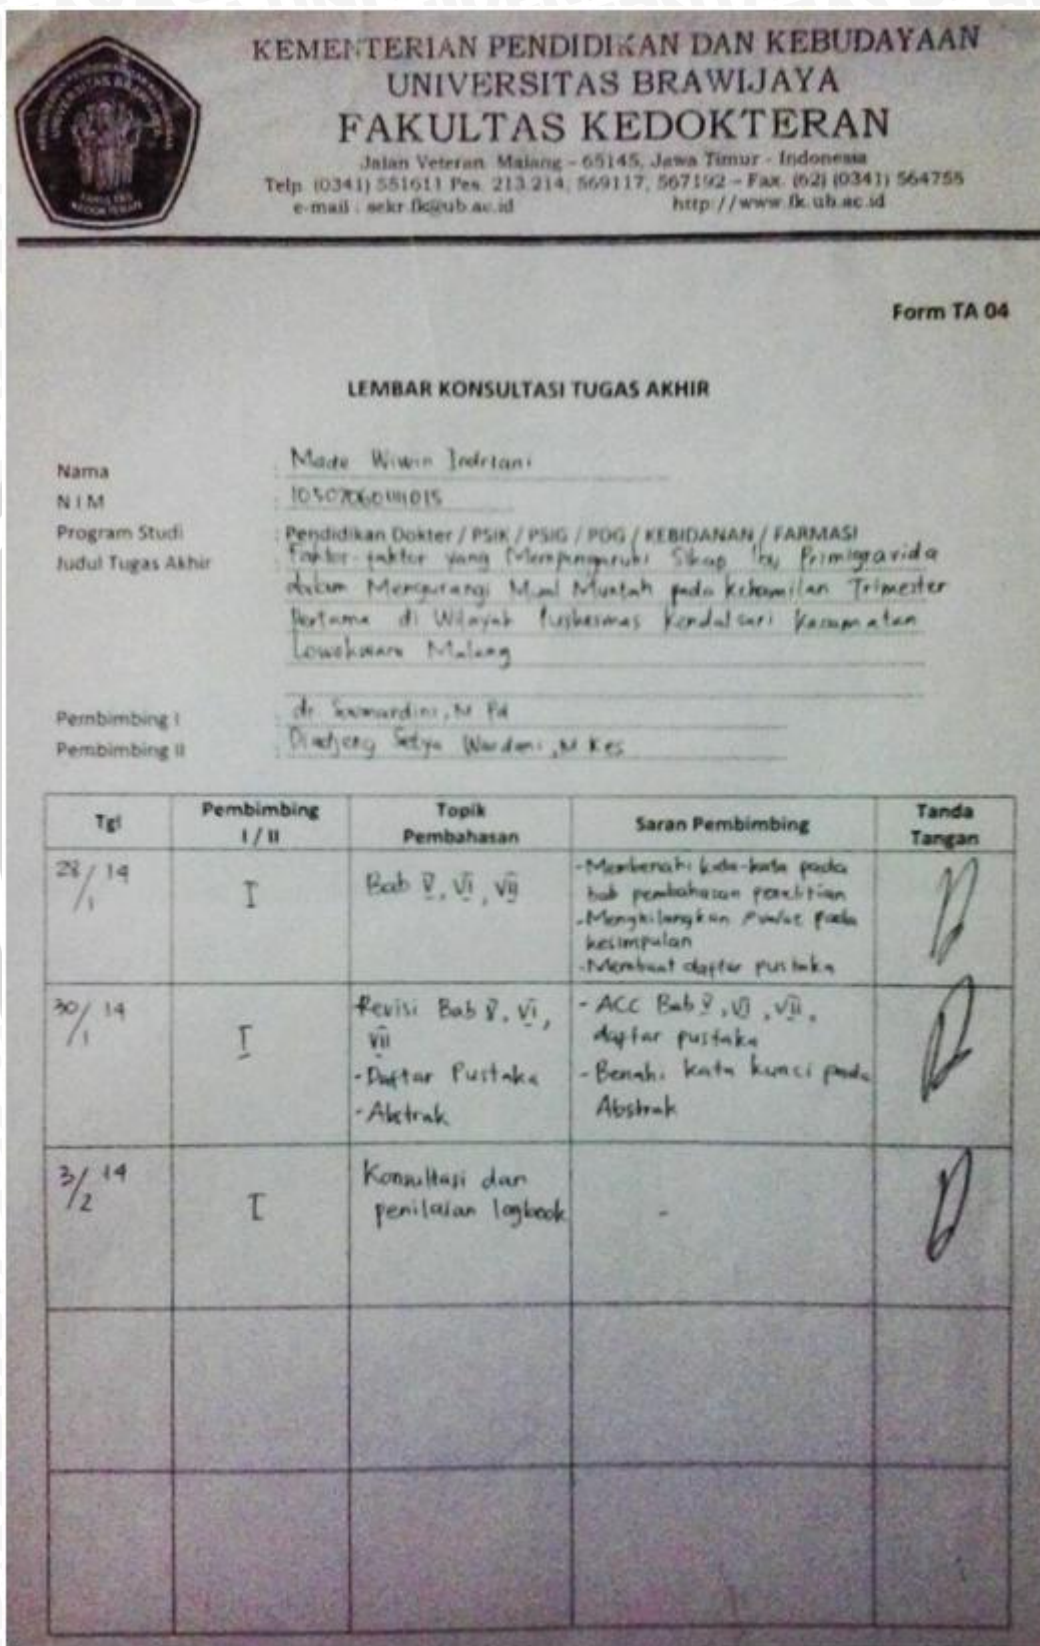 KEMENTERIAN PENDIDIKAN DAN KEBUDAYAAN
UNIVERSITAS BRAWIJAYA
FAKULTAS KEDOKTERAN
Jalan Veteran Malang - 65145, Jawa Timur - Indonesia
Telp. (0341) 551611 Pes. 213.214; 569117, 567192 - Fax. (62) (0341) 564755
e-mail : sekr.fk@ub.ac.id http://www.fk.ub.ac.id
Form TA 04
LEMBAR KONSULTASI TUGAS AKHIR
Nama : Made Wiwin Indriani
NIM :
Program Studi : Pendidikan Dokter / PSIK / PSIG / PDG / KEBIDANAN / FARMASI
Judul Tugas Akhir : Faktor-faktor yang Mempengaruhi Sikap Ibu Primigravida
dalam Mengurangi Mual Muntah pada Kehamilan Trimester
Pertama di Wilayah Puskesmas Kendalsari Kecamatan
Lowokwaru Malang
Pembimbing I : dr Soemardini, M Pd
Pembimbing II : Diadjeng Setya Wardani, M Kes
Tgl Pembimbing I / II Topik Pembahasan Saran Pembimbing Tanda Tangan
28/1 14 I Bab V, VI, VII
-Membenahi kata-kata pada
bab pembahasan penelitian
-Menghilangkan Pvalue pada
kesimpulan
-Membuat daftar pustaka
30/1 14 I
Revisi Bab V, VI,
VII
-Daftar Pustaka
-Abstrak
- ACC Bab V, VI, VII,
daftar pustaka
- Benahi kata kunci pada
Abstrak
3/2 14 I
Konsultasi dan
penilaian logbook
-